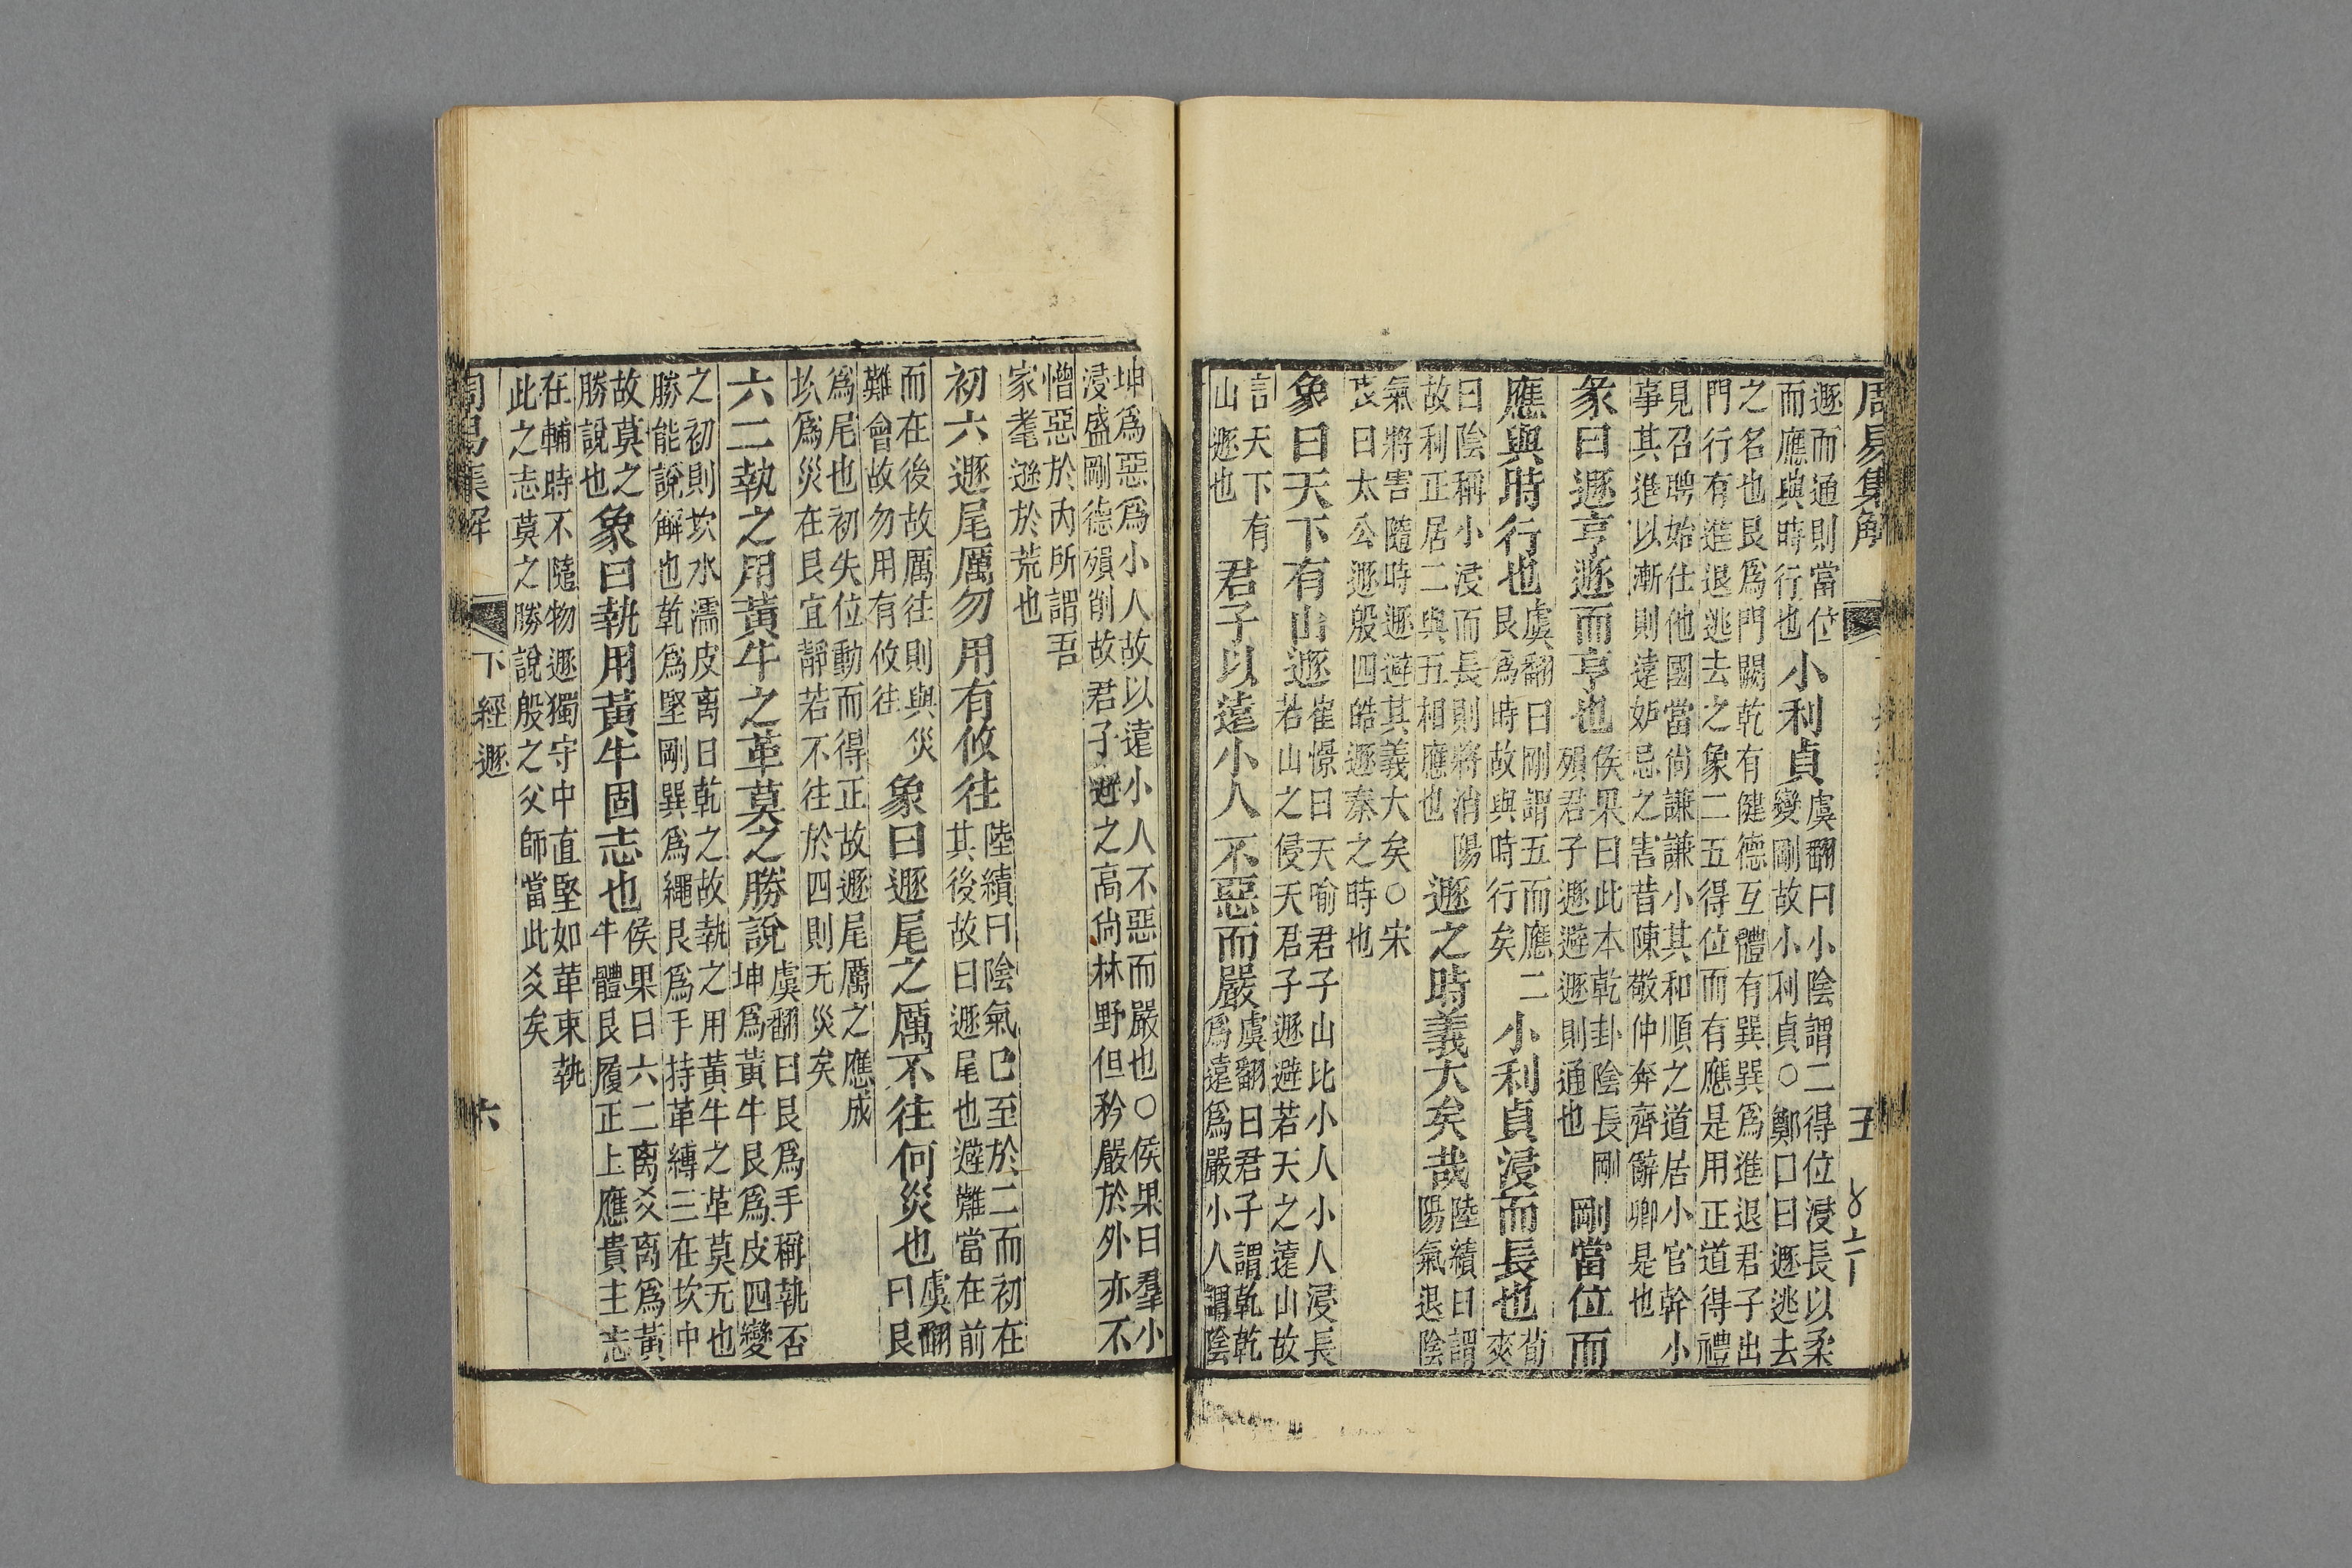 周易集解 五
遯而通則當位
而應與時行也
小利貞
虞翻曰小陰謂二得位浸長以柔
變剛故小利貞○鄭口曰遯逃去
之名也艮爲門闕乾有健德互體有巽巽爲進退君子出
門行有進退逃去之象二五得位而有應是用正道得禮
見召聘始仕他國當尚謙謙小其和順之道居小官幹小
事其進以漸則遠妒忌之害昔陳敬仲奔齊辭卿是也
彖曰遯亨遯而亨也
侯果曰此本乾卦陰長剛
殞君子遯避遯則通也
剛當位而
應與時行也
虞翻曰剛謂五而應二
艮爲時故與時行矣
小利貞浸而長也
荀
爽
曰陰稱小浸而長則將消陽
故利正居二與五相應也
遯之時義大矣哉
陸績曰謂
陽氣退陰
氣將害隨時遯避其義大矣○宋
衷曰太公遯殷四皓遯秦之時也
象曰天下有山遯
崔憬曰天喻君子山比小人小人浸長
若山之侵天君子遯避若天之遠山故
言天下有
山遯也
君子以遠小人不惡而嚴
虞翻曰君子謂乾乾
爲遠爲嚴小人謂陰
坤爲惡爲小人故以遠小人不惡而嚴也○侯果曰羣小
浸盛剛德殞削故君子避之高尚林野但矜嚴於外亦不
憎惡於内所謂吾
家耄遜於荒也
初六遯尾厲勿用有攸往
陸績曰陰氣已至於二而初在
其後故曰遯尾也避難當在前
而在後故厲往則與災
難會故勿用有攸往
象曰遯尾之厲不往何災也
虞翻
曰艮
爲尾也初失位動而得正故遯尾厲之應成
坎爲災在艮宜靜若不往於四則无災矣
六二執之用黃牛之革莫之勝說
虞翻曰艮爲手稱執否
坤爲黃牛艮爲皮四變
之初則坎水濡皮离日乾之故執之用黃牛之革莫无也
勝能說解也乾爲堅剛巽爲繩艮爲手持革縛三在坎中
故莫之
勝說也
象曰執用黃牛固志也
侯果曰六二离爻离爲黃
牛體艮履正上應貴主志
在輔時不隨物遯獨守中直堅如革束執
此之志莫之勝說殷之父師當此爻矣
周易集解 下經遯 六